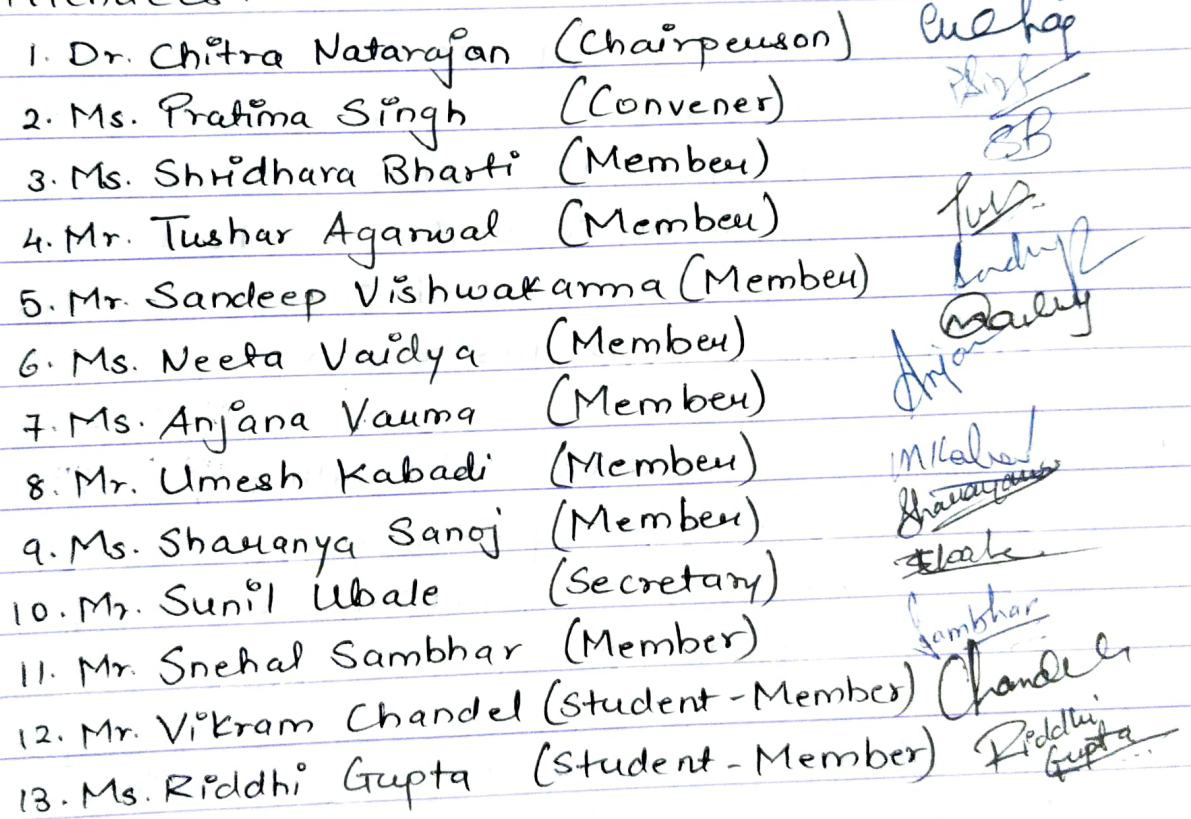 1. Dr. Chitra Natarajan (Chairperson)
2. Ms. Pratima Singh (Convener)
3. Ms. Shridhara Bharti (Member) SB
4. Mr. Tushar Agarwal (Member)
5. Mr. Sandeep Vishwakarma (Member)
6. Ms. Neeta Vaidya (Member)
7. Ms. Anjana Varma (Member)
8. Mr. Umesh Kabadi (Member)
9. Ms. Sharanya Sanoj (Member)
10. Mr. Sunil Ubale (Secretary)
11. Mr. Snehal Sambhar (Member) Sambhar
12. Mr. Vikram Chandel (Student-Member)
13. Ms. Riddhi Gupta (Student-Member) Riddhi
Gupta